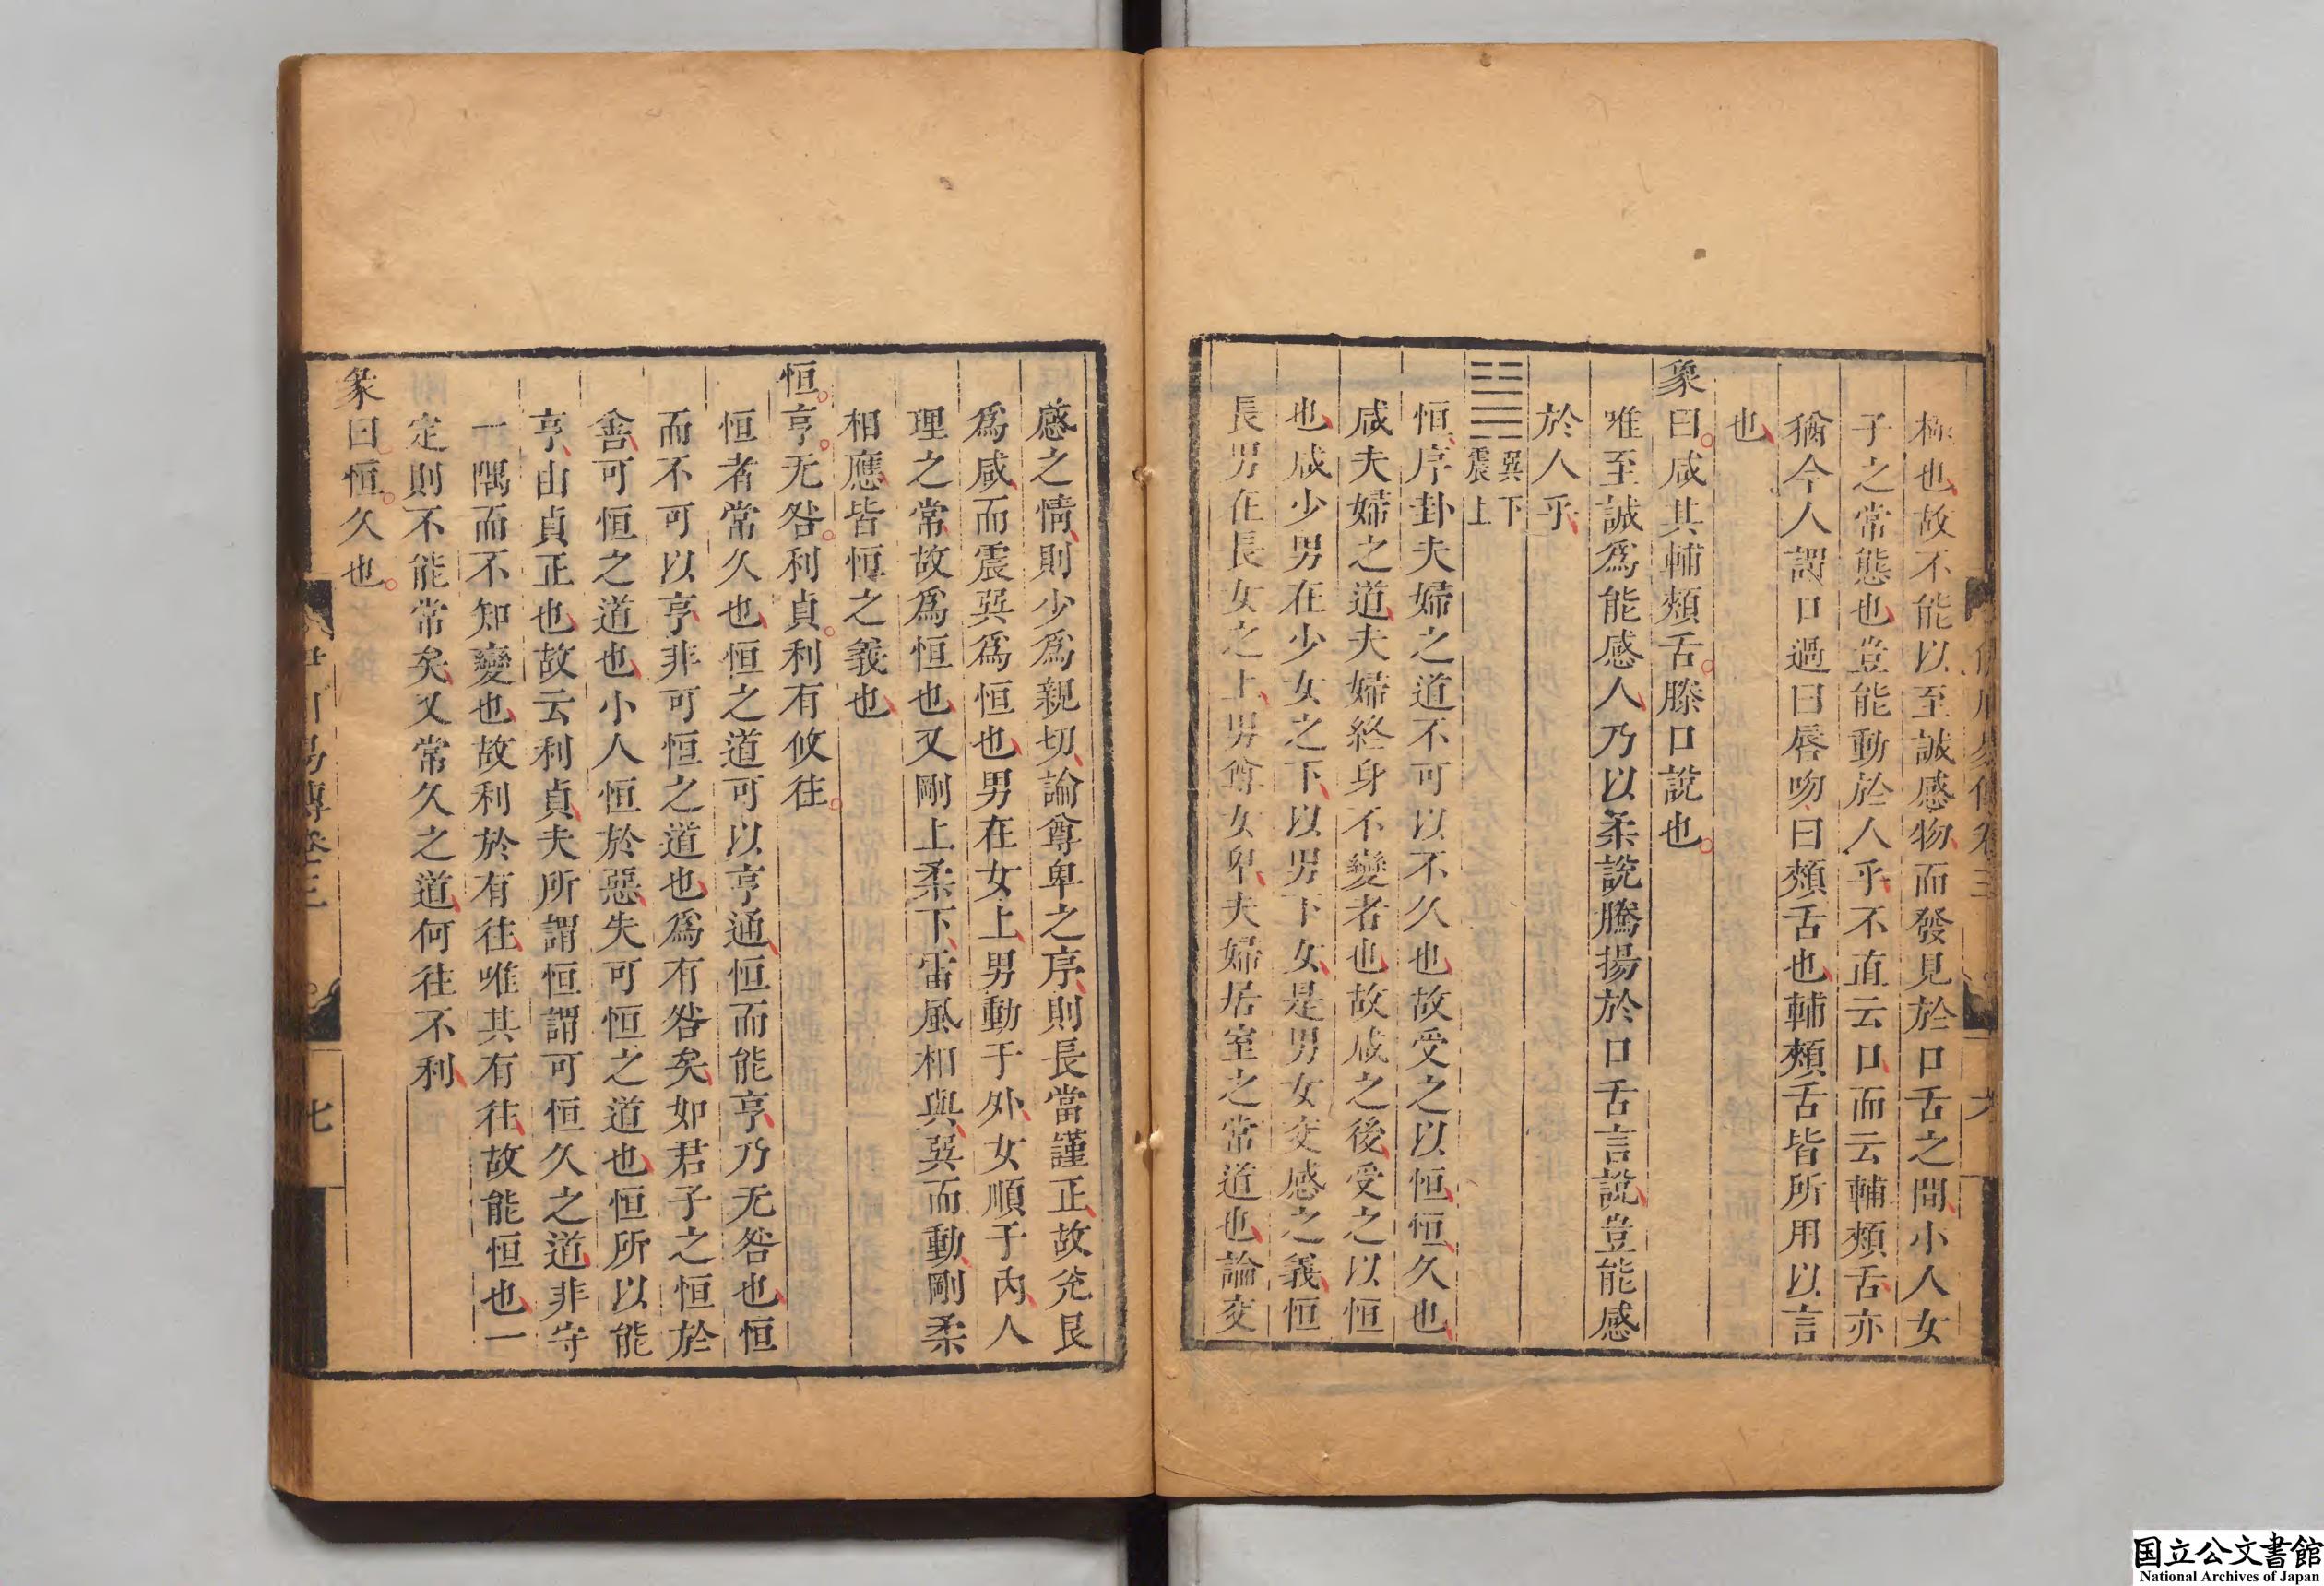 極也故不能以至誠感物而發見於口舌之間小人女
子之常態也豈能動於人乎不直云口而云輔頰舌亦
猶今人謂口過曰唇吻曰頰舌也輔頰舌皆所用以言
也
象曰咸其輔頰舌滕口說也
唯至誠爲能感人乃以柔說騰揚於口舌言說豈能感
於人乎
巽下
震上
恒序卦夫婦之道不可以不久也故受之以恒恒久也
咸夫婦之道夫婦終身不變者也故咸之後受之以恒
也咸少男在少女之下以男下女是男女交感之義恒
長男在長女之上男尊女卑夫婦居室之常道也論交
感之情則少爲親切論尊卑之序則長當謹正故兊艮
爲咸而震巽爲恒也男在女上男動于外女順于內人
理之常故爲恒也又剛上柔下雷風相與巽而動剛柔
相應皆恒之義也
恒亨无咎利貞利有攸往
恒者常久也恒之道可以亨通恒而能亨乃无咎也恒
而不可以亨非可恒之道也爲有咎矣如君子之恒於
善可恒之道也小人恒於惡失可恒之道也恒所以能
亨由貞正也故云利貞夫所謂恒謂可恒久之道非守
一隅而不知變也故利於有往唯其有往故能恒也一
定則不能常矣又常久之道何往不利
彖曰恒久也
伊川易傳卷三
七
国立公文書館
National Archives of Japan